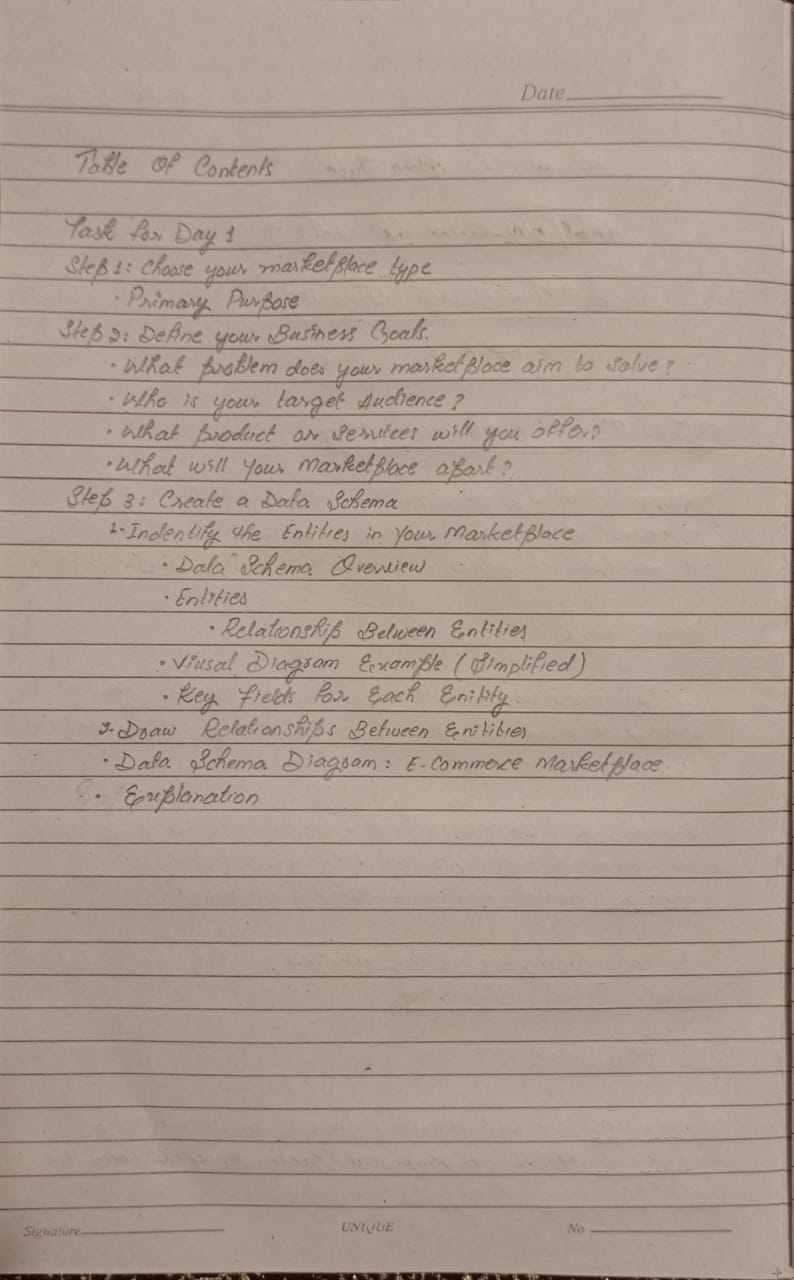 Date
Table Of Contents
Task for Day 1
Step 1: Choose your marketplace type
• Primary Purpose
Step 2: Define your Business Goals.
• What problem does your marketplace aim to solve?
• Who is your target Audience?
• What product or services will you offer?
• What will your Marketplace apart?
Step 3: Create a Data Schema
1- Indentify the Entities in your Marketplace
• Data Schema Overview
• Entities
• Relationship Between Entities
• Viusal Diagram Example (Simplified)
• Key fields for Each Enitity.
2- Draw Relationships Between Enitities
• Data Schema Diagram: E-Commerce Marketplace.
• Explanation
Signature UNIQUE No